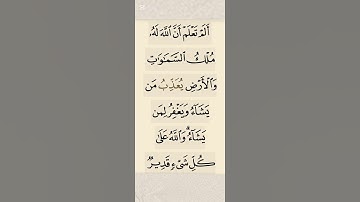 أَلَمْ تَعْلَمْ أَنَّ ٱللَّهَ لَهُۥ
مُلْكُ ٱلسَّمَـٰوَٰتِ
وَٱلْأَرْضِ يُعَذِّبُ مَن
يَشَآءُ وَيَغْفِرُ لِمَن
يَشَآءُ ۗ وَٱللَّهُ عَلَىٰ
كُلِّ شَىْءٍ قَدِيرٌ